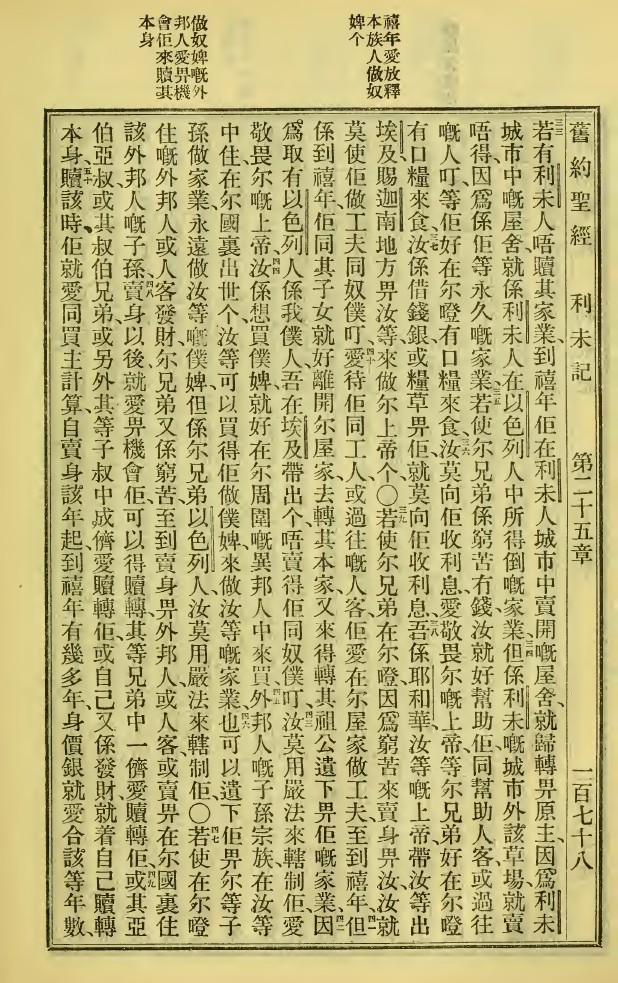 禧年愛放釋
本族人做奴
婢个
做奴婢嘅外
邦人愛畀機
會佢來贖其
本身
舊約聖經 利未記 第二十五章 二百七十八
三三若有利未人唔贖其家業、到禧年佢在利未人城市中賣開嘅屋舍、就歸轉畀原主、因爲利未
城市中嘅屋舍就係利未人在以色列人中所得倒嘅家業、三四但係利未嘅城市外該草場就賣
唔得、因爲係佢等永久嘅家業、三五若使尔兄弟係窮苦有錢汝就好幫助佢、同幫助人客或過往
嘅人叮等佢好在尔嶝有口糧來食、三六汝莫向佢收利息、愛敬畏尔嘅上帝、等尔兄弟好在尔嶝
有口糧來食、三七汝係借錢銀、或糧草畀佢、就莫向佢收利息、三八吾係耶和華汝等嘅上帝、帶汝等出
埃及、賜迦南地方畀汝等、來做尔上帝个、〇三九若使尔兄弟在尔嶝因爲窮苦來賣身畀汝、汝就
莫使佢做工夫同奴僕叮、四十愛待佢同工人、或過往嘅人客、佢愛在尔屋家做工夫、至到禧年、四一但
係到禧年佢同其子女就好離開尔屋家去轉其本家、又來得轉其祖公遺下畀佢嘅家業、四二因
爲取有以色列人係我僕人、吾在埃及帶出个、唔賣得佢同奴僕叮、四三汝莫用嚴法來轄制佢、愛
敬畏尔嘅上帝、四四汝係想買僕婢、就好在尔周圍嘅異邦人中來買、四五外邦人嘅子孫宗族在汝等
中住、在尔國裏出世个、汝等可以買得佢做僕婢、來做汝等嘅家業、四六也可以遺下佢畀尔等子
孫做家業、永遠做汝等嘅僕婢、但係尔兄弟以色列人、汝莫用嚴法來轄制佢、〇四七若使在尔嶝
住嘅外邦人、或人客發財、尔兄弟又係窮苦、至到賣身畀外邦人、或人客、或賣畀在尔國裏住
該外邦人嘅子孫、四八賣身以後就愛畀機會佢、可以得贖轉、其等兄弟中一儕愛贖轉佢、四九或其亞
伯亞叔、或其叔伯兄弟、或另外其等子叔中成儕愛贖轉佢、或自己又係發財、就着自己贖轉
本身、五十贖該時佢就愛同買主計算、自賣身該年起到禧年有幾多年、身價銀就愛合該等年數、